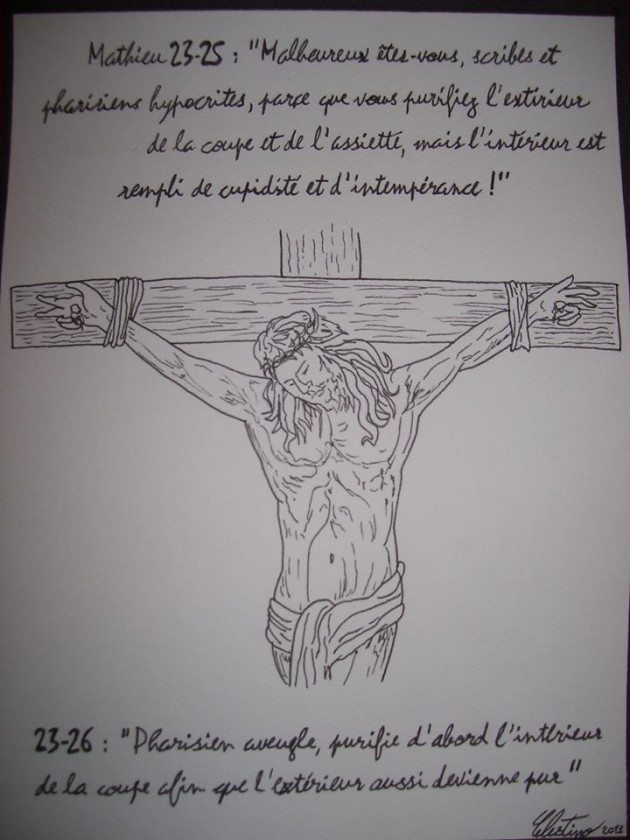 Mathieu 23-25 : "Malheureux êtes-vous, scribes et
pharisiens hypocrites, parce que vous purifiez l'extérieur
de la coupe et de l'assiette, mais l'intérieur est
rempli de cupidité et d'intempérance !"
23-26 : "Pharisien aveugle, purifie d'abord l'intérieur
de la coupe afin que l'extérieur aussi devienne pur"
Celestino